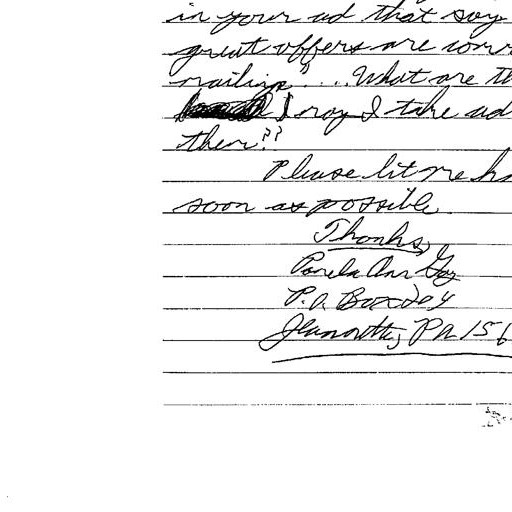 in your ad that say
great offers are
mailings"...What are
may I take ad
them??
Please let me
soon as possible
Thanks,
Pamela Ann
P.O. Box 204
Jeannette, PA 156